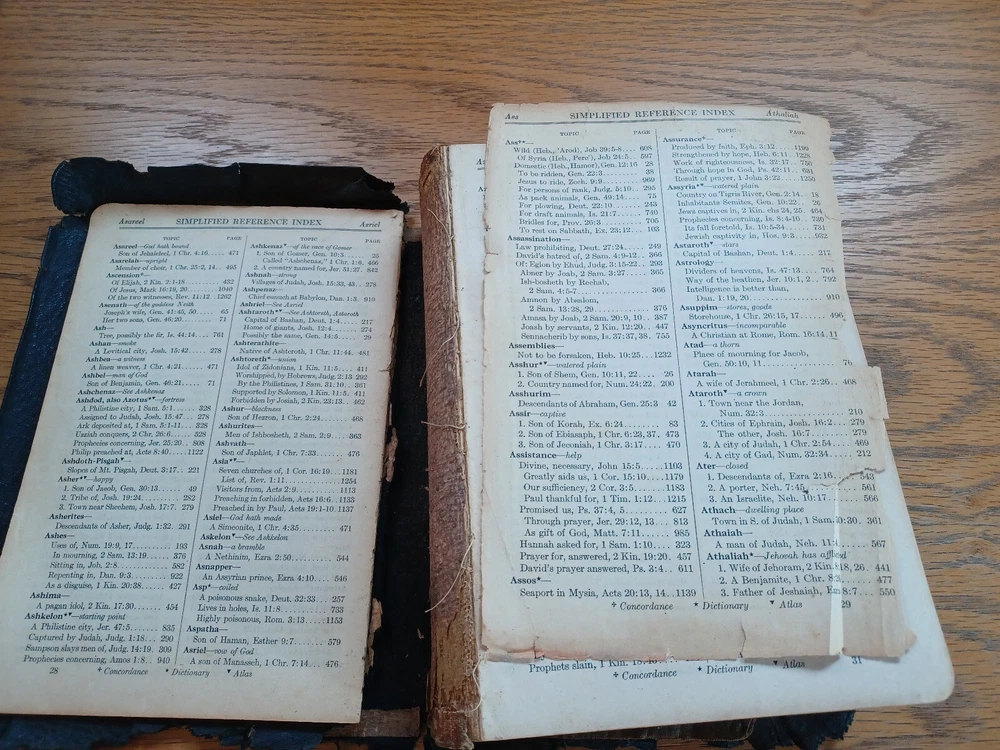 Asareel SIMPLIFIED REFERENCE INDEX Asriel
TOPIC PAGE
Asareel—God hath bound
Son of Jehaleleel, 1 Chr. 4:16 471
Asarelah—upright
Member of choir, 1 Chr. 25:2, 14.. 495
Ascension*—
Of Elijah, 2 Kin. 2:1-18 432
Of Jesus, Mark 16:19, 20 1040
Of the two witnesses, Rev. 11:12 1262
Asenath—of the goddess Neith
Joseph's wife, Gen. 41:45, 50 65
Her two sons, Gen. 46:20 71
Ash—
Tree, possibly the fir, Is. 44:14 761
Ashan—smoke
A Levitical city, Josh. 15:42 278
Ashbea—a witness
A linen weaver, 1 Chr. 4:21 471
Ashbel—man of God
Son of Benjamin, Gen. 46:21 71
Ashchenaz—See Ashkenaz
Ashdod, also Azotus*▾—fortress
A Philistine city, 1 Sam. 5:1 328
Assigned to Judah, Josh. 15:47 278
Ark deposited at, 1 Sam. 5:1-11 328
Uzziah conquers, 2 Chr. 26:6 528
Prophecies concerning, Jer. 25:20 808
Philip preached at, Acts 8:40 1122
Ashdoth-Pisgah▾—
Slopes of Mt. Pisgah, Deut. 3:17 221
Asher*—happy
1. Son of Jacob, Gen. 30:13 49
2. Tribe of, Josh. 19:24 282
3. Town near Shechem, Josh. 17:7 279
Asherites—
Descendants of Asher, Judg. 1:32. 291
Ashes—
Uses of, Num. 19:9, 17 193
In mourning, 2 Sam. 13:19 376
Sitting in, Job 2:8 582
Repenting in, Dan. 9:3 922
As a disguise, 1 Kin. 20:38 427
Ashima—
A pagan idol, 2 Kin. 17:30 454
Ashkelon*▾—starting point
A Philistine city, Jer. 47:5 835
Captured by Judah, Judg. 1:18 290
Sampson slays men of, Judg. 14:19. 309
Prophecies concerning, Amos 1:8.. 940
TOPIC PAGE
Ashkenaz*—of the race of Gomer
1. Son of Gomer, Gen. 10:3 25
Called "Ashchenaz," 1 Chr. 1:6. 466
2. A country named for, Jer. 51:27. 842
Ashnah—strong
Villages of Judah, Josh. 15:33, 43 278
Ashpenaz—
Chief eunuch at Babylon, Dan. 1:3 919
Ashriel—See Asriel
Ashtaroth*▾—See Ashteroth, Astaroth
Capital of Bashan, Deut. 1:4 217
Home of giants, Josh. 12:4 274
Possibly the same, Gen. 14:5 29
Ashterathite—
Native of Ashteroth, 1 Chr. 11:44. 481
Ashtoreth*—union
Idol of Zidonians, 1 Kin. 11:5 411
Worshipped by Hebrews, Judg. 2:13 292
By the Philistines, 1 Sam. 31:10 361
Supported by Solomon, 1 Kin. 11:5 411
Forbidden by Josiah, 2 Kin. 23:13 462
Ashur—blackness
Son of Hezron, 1 Chr. 2:24 468
Ashurites—
Men of Ishbosheth, 2 Sam. 2:9 363
Ashvath—
Son of Japhlet, 1 Chr. 7:33 476
Asia*▾—
Seven churches of, 1 Cor. 16:19 1181
List of, Rev. 1:11 1254
Visitors from, Acts 2:9 1113
Preaching in forbidden, Acts 16:6 1133
Preached in by Paul, Acts 19:1-10. 1137
Asiel—God hath made
A Simeonite, 1 Chr. 4:35 471
Askelon▾—See Ashkelon
Asnah—a bramble
A Nethinim, Ezra 2:50 544
Asnapper—
An Assyrian prince, Ezra 4:10 546
Asp*—coiled
A poisonous snake, Deut. 32:33 257
Lives in holes, Is. 11:8 733
Highly poisonous, Rom. 3:13 1153
Aspatha—
Son of Haman, Esther 9:7 579
Asriel—vow of God
A son of Manasseh, 1 Chr. 7:14 476
28 ✢ Concordance * Dictionary ▾ Atlas
Ass SIMPLIFIED REFERENCE INDEX Athaliah
TOPIC PAGE
Ass*✢—
Wild (Heb., 'Arod), Job 39:5-8 608
Of Syria (Heb., Pere'), Job 24:5 597
Domestic (Heb., Hamor), Gen. 12:16 28
To be ridden, Gen. 22:3 38
Jesus to ride, Zech. 9:9 969
For persons of rank, Judg. 5:10 295
As pack animals, Gen. 49:14 75
For plowing, Deut. 22:10 243
For draft animals, Is. 21:7 740
Bridles for, Prov. 26:3 705
To rest on Sabbath, Ex. 23:12 103
Assassination—
Law prohibiting, Deut. 27:24 249
David's hatred of, 2 Sam. 4:9-12 366
Of: Eglon by Ehud, Judg. 3:15-22 293
Abner by Joab, 2 Sam. 3:27 365
Ish-bosheth by Rechab,
2 Sam. 4:5-7 366
Amnon by Absalom,
2 Sam. 13:28, 29 376
Amasa by Joab, 2 Sam. 20:9, 10 387
Joash by servants, 2 Kin. 12:20 447
Sennacherib by sons, Is. 37:37, 38 755
Assemblies—
Not to be forsaken, Heb. 10:25 1232
Asshur*▾—watered plain
1. Son of Shem, Gen. 10:11, 22 26
2. Country named for, Num. 24:22. 200
Asshurim—
Descendants of Abraham, Gen. 25:3 42
Assir—captive
1. Son of Korah, Ex. 6:24 83
2. Son of Ebiasaph, 1 Chr. 6:23, 37. 473
3. Son of Jeconiah, 1 Chr. 3:17 470
Assistance—help
Divine, necessary, John 15:5 1103
Greatly aids us, 1 Cor. 15:10 1179
Our sufficiency, 2 Cor. 3:5 1183
Paul thankful for, 1 Tim. 1:12 1215
Promised us, Ps. 37:4, 5 627
Through prayer, Jer. 29:12, 13 813
As gift of God, Matt. 7:11 985
Hannah asked for, 1 Sam. 1:10 323
Prayer for, answered, 2 Kin. 19:20 457
David's prayer answered, Ps. 3:4 611
Assos*—
Seaport in Mysia, Acts 20:13, 14 1139
TOPIC PAGE
Assurance*—
Produced by faith, Eph. 3:12 1199
Strengthened by hope, Heb. 6:11 1228
Work of righteousness, Is. 32:17 750
Through hope in God, Ps. 42:11 631
Result of prayer, 1 John 3:22 1250
Assyria*▾—watered plain
Country on Tigris River, Gen. 2:14 18
Inhabitants Semites, Gen. 10:22 26
Jews captives in, 2 Kin. chs 24, 25. 464
Prophecies concerning, Is. 8:4-10 730
Its fall foretold, Is. 10:5-34 731
Jewish captivity in, Hos. 9:3 932
Astaroth*—stars
Capital of Bashan, Deut. 1:4 217
Astrology—
Dividers of heavens, Is. 47:13 764
Way of the heathen, Jer. 10:1, 2 792
Intelligence is better than,
Dan. 1:19, 20 910
Asuppim—stores, goods
Storehouse, 1 Chr. 26:15, 17 496
Asyncritus—incomparable
A Christian at Rome, Rom. 16:14
Atad—a thorn
Place of mourning for Jacob,
Gen. 50:10, 11 76
Atarah—
A wife of Jerahmeel, 1 Chr. 2:26 468
Ataroth▾—a crown
1. Town near the Jordan,
Num. 32:3 210
2. Cities of Ephraim, Josh. 16:2 279
The other, Josh. 16:7 279
3. A city of Judah, 1 Chr. 2:54 469
4. A city of Gad, Num. 32:34 212
Ater—closed
1. Descendants of, Ezra 2:16 543
2. A porter, Neh. 7:45 561
3. An Israelite, Neh. 10:17 566
Athach—dwelling place
Town in S. of Judah, 1 Sam. 30:30. 361
Athaiah—
A man of Judah, Neh. 11:4 567
Athaliah*—Jehovah has afflicted
1. Wife of Jehoram, 2 Kin. 8:18, 26. 441
2. A Benjamite, 1 Chr. 477
3. Father of Jeshaiah, Ezr. 8:7 550
✢ Concordance * Dictionary ▾ Atlas 29
Prophets slain, 1 Kin.
✢ Concordance * Dictionary ▾ Atlas 31